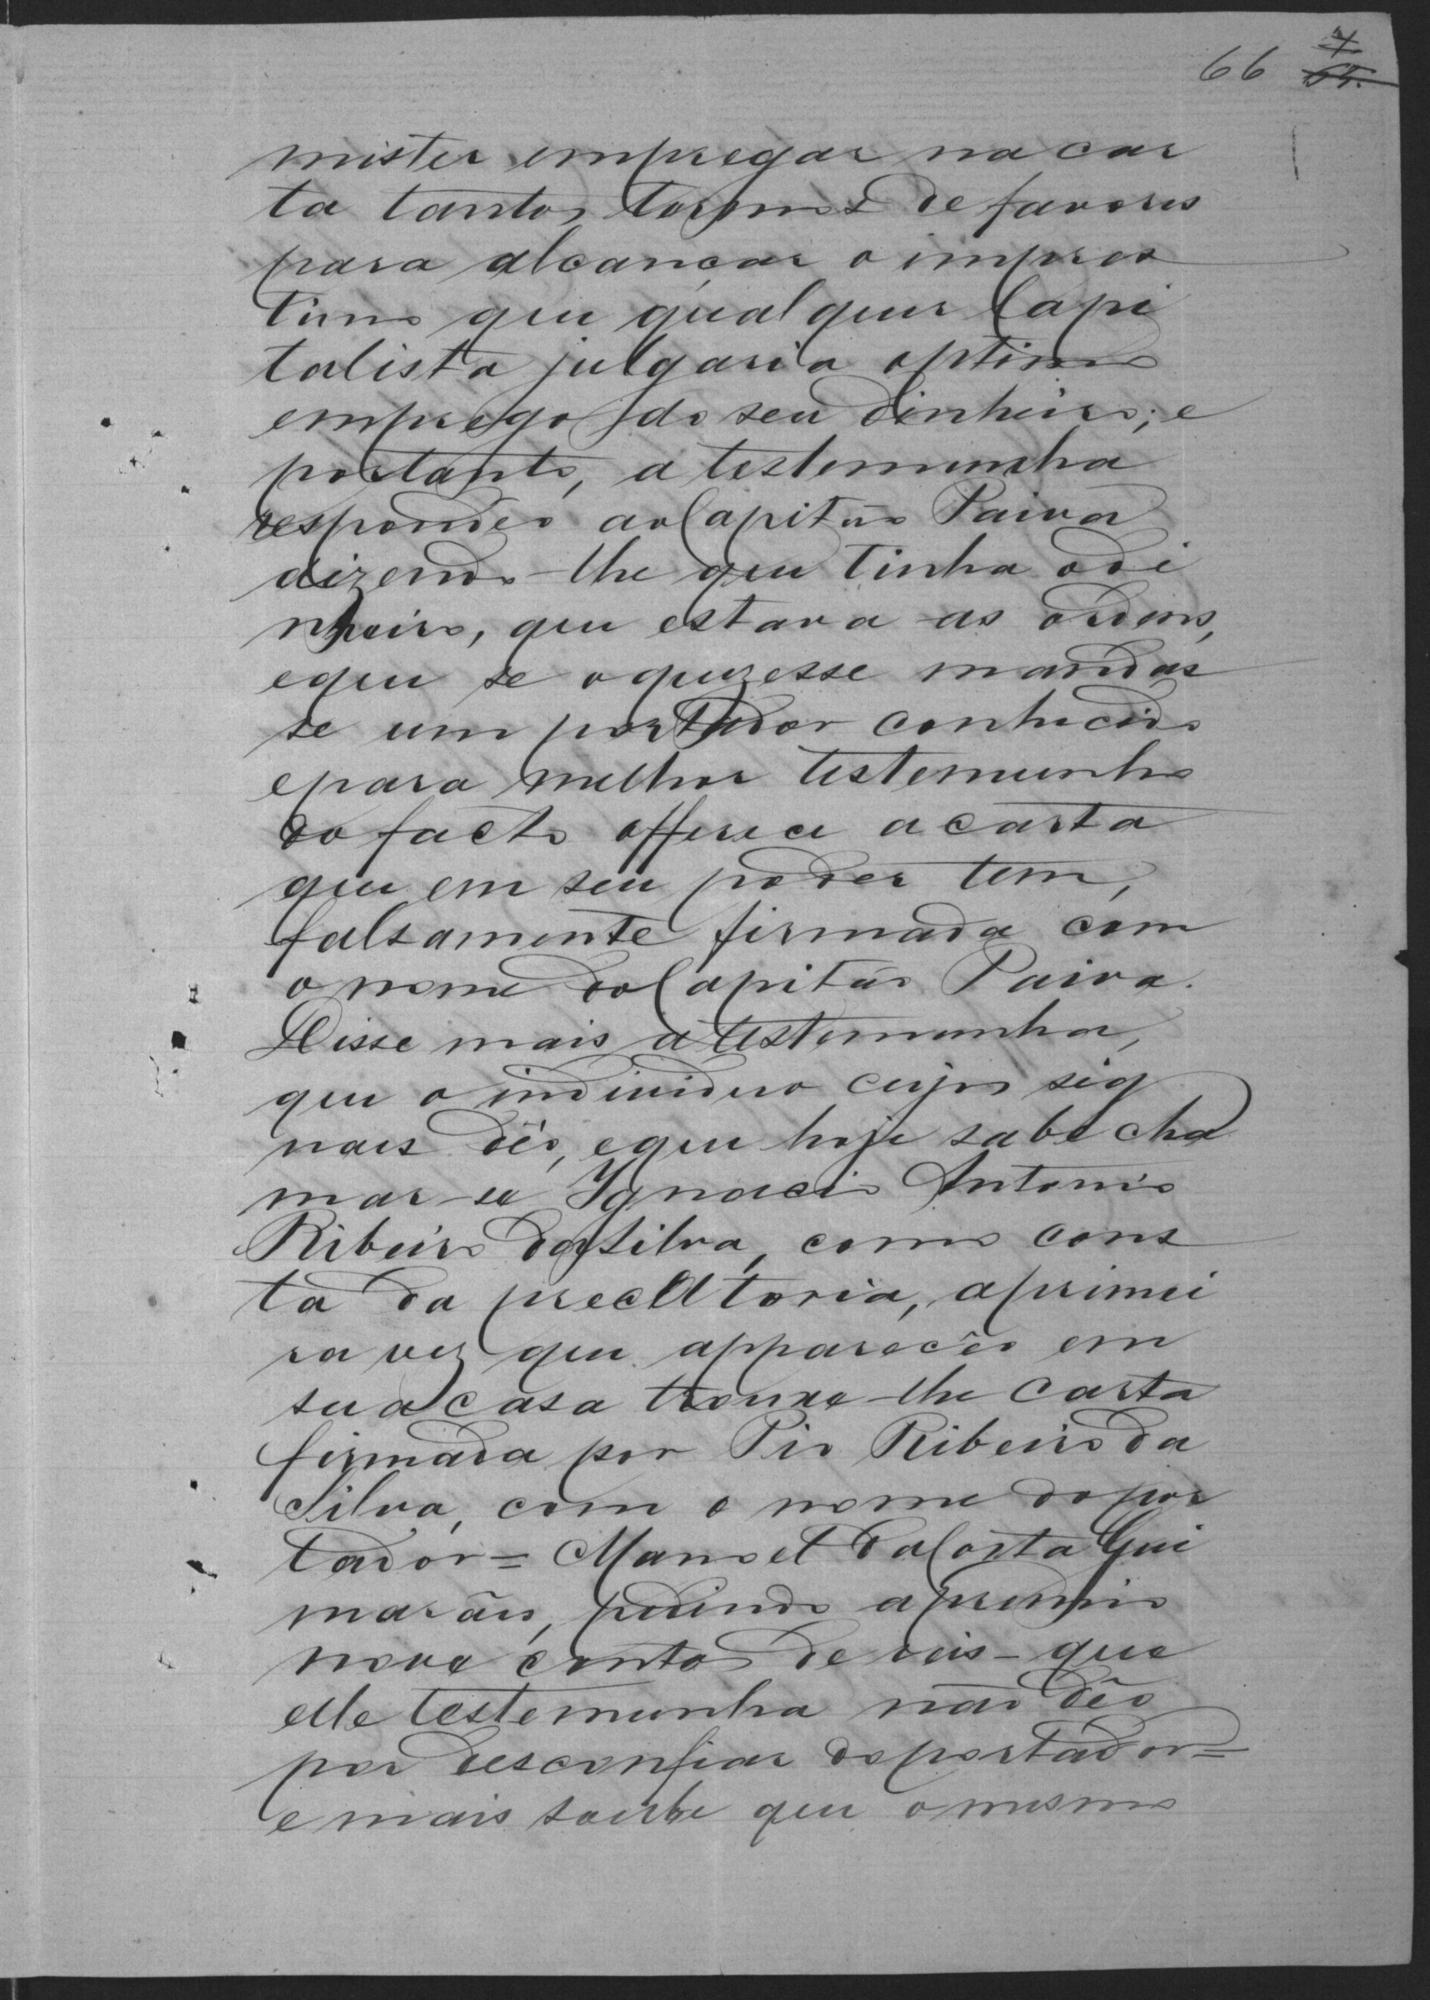 66 7
mister empregar na car
ta tantos termos de favores
para alcançar o impres
timo que qualquer Capi
talista julgaria optimo
emprego do seu dinheiro; e
portanto, a testemunha
respondêo ao Capitão Paiva
dizendo-lhe que tinha o di
nheiro, que estava as ordens,
e que se o quezesse mandas
se um portador conhecido
e para melhor testemunho
do facto offerece a carta
que em seu poder tem,
falsamente firmada com
o nome do Capitão Paiva.
Disse mais a testemunha,
que o individuo cujos sig
naes dêo, e que hoje sabe cha
mar-se Ignacio Antonio
Ribeiro da Silva, como cons
ta da precatoria, a primei
ra vez que apparecêo em
sua casa trouxe-lhe carta
firmada por Pio Ribeiro da
Silva, com o nome do por
tador = Manoel da Costa Gui
marães, pedindo a premio
nove contos de reis - que
elle testemunha não dêo
por desconfiar do portador =
e mais soube que o mesmo